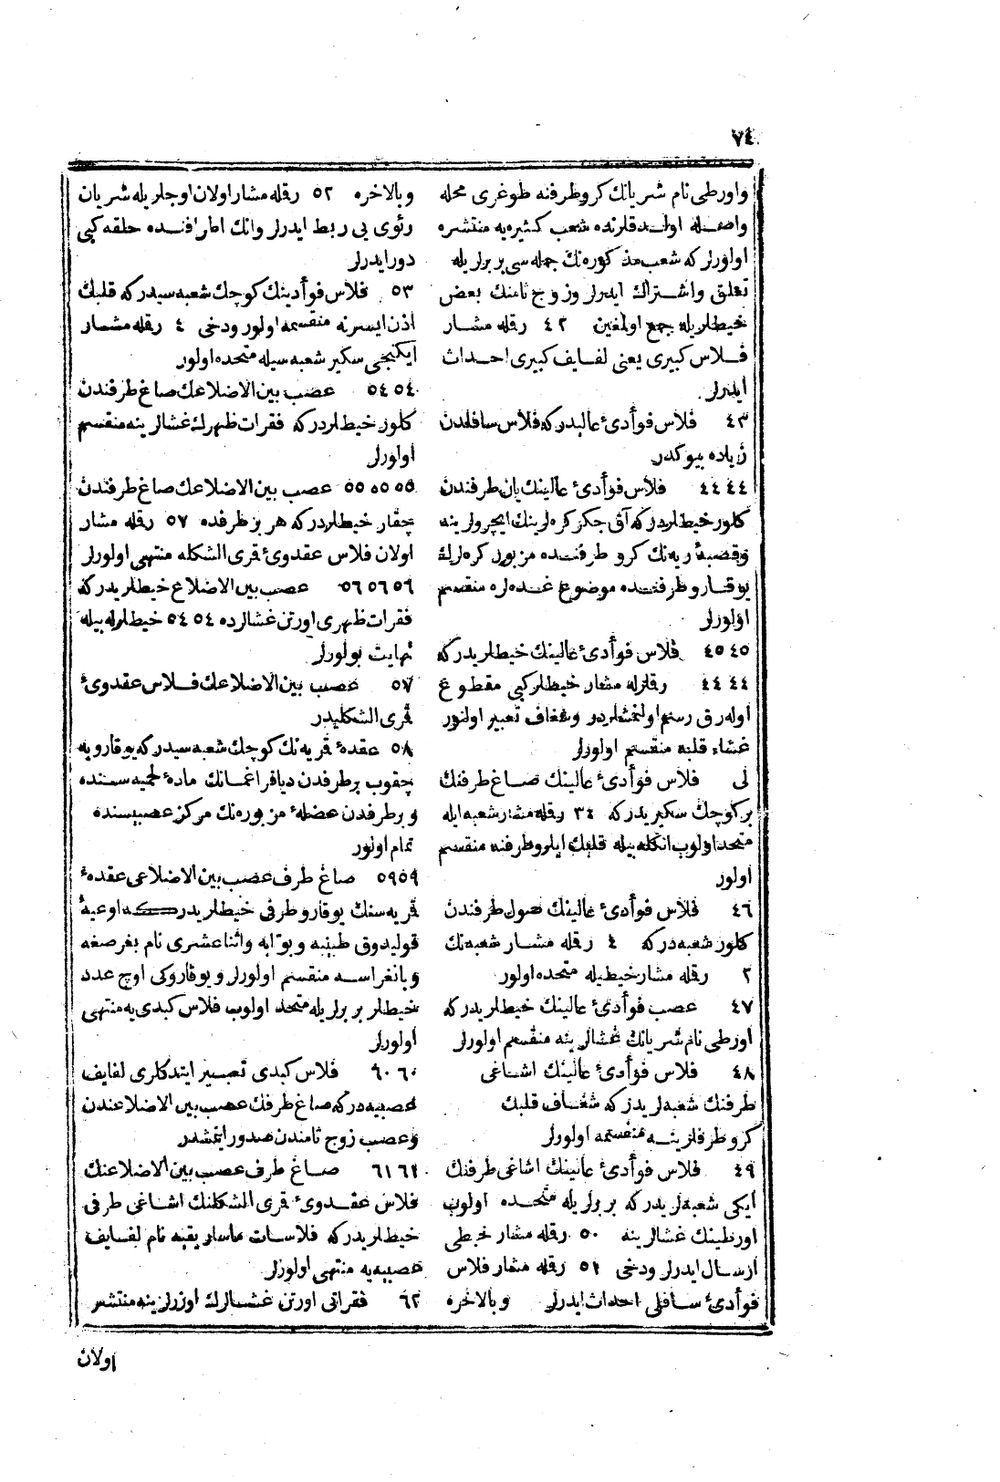 ٧٤
واورطی نام شریانك كرو طرفنه طوغری محله
واصله اولدقلرنده شعب كثیره یه منتشره
اولورلر كه شعب مذكوره نك جمله سی بربرلریله
تعلق واشتراك ایدرلر وزوج ثامنك بعض
خیطلریله جمع اولمغین ٤٢ رقمله مشار
فلاس كبیری یعنی لفایف كبیری احداث
ایدرلر
٤٣ فلاس فوأدئ عالیدر كه فلاس سافلدن
زیاده بیوكدر
٤٤ ٤٤ فلاس فوأدئ عالینك یان طرفندن
كلور خیطلردر كه آق جكر كره لرینك ایچرولرینه
وقصبۀ ریه نك كرو طرفنده مزبور كره لرك
یوقارو طرفنده موضوع غده لره منقسم
اولورلر
٤٥ ٤٥ فلاس فوأدئ عالینك خیطلریدر كه
٤٤ ٤٤ رقملرله مشار خیطلر كبی مقطوع
اوله رق رسم اولنمشلردر وشغاف تعبیر اولنور
غشاء قلبه منقسم اولورلر
لی فلاس فوأدئ عالینك صاغ طرفنك
بر كوچك سكیریدر كه ٣٤ رقمله مشار شعبه ایله
متحد اولوب انكله بیله قلبك ایلرو طرفنه منقسم
اولور
٤٦ فلاس فوأدئ عالینك صول طرفندن
كلور شعبه در كه ٤ رقمله مشار شعبه نك
٢ رقمله مشار خیطیله متحده اولور
٤٧ عصب فوأدئ عالینك خیطلریدر كه
اورطی نام شریانك غشالرینه منقسم اولورلر
٤٨ فلاس فوأدئ عالینك اشاغی
طرفنك شعبه لریدر كه شغاف قلبك
كرو طرفلرینه منقسمه اولورلر
٤٩ فلاس فوأدئ عالینك اشاغی طرفنك
ایكی شعبه لریدر كه بربرلریله متحده اولوب
اورطینك غشالرینه ٥٠ رقمله مشار خیطی
ارسال ایدرلر ودخی ٥١ رقمله مشار فلاس
فوأدئ سافلی احداث ایدرلر وبالاخره
وبالاخره ٥٢ رقمله مشار اولان اوجلریله شریان
رئوی یی ربط ایدرلر وانك اطرافنده حلقه كبی
دور ایدرلر
٥٣ فلاس فوأدینك كوچك شعبه سیدر كه قلبك
اذن ایسرنه منقسمه اولور ودخی ٤ رقمله مشار
ایكنجی سكیر شعبه سیله متحده اولور
٥٤ ٥٤ عصب بین الاضلاعك صاغ طرفندن
كلور خیطلردر كه فقرات ظهرك غشالرینه منقسم
اولورلر
٥٥ ٥٥ ٥٥ عصب بین الاضلاعك صاغ طرفندن
چقار خیطلردر كه هر بر طرفده ٥٧ رقمله مشار
اولان فلاس عقدوئ قمری الشكله منتهی اولورلر
٥٦ ٥٦ ٥٦ عصب بین الاضلاع خیطلریدر كه
فقرات ظهری اورتن غشالرده ٥٤ ٥٤ خیطلرله بیله
نهایت بولورلر
٥٧ عصب بین الاضلاعك فلاس عقدوئ
قمری الشكلیدر
٥٨ عقدۀ قمریه نك كوچك شعبه سیدر كه یوقارویه
چقوب بر طرفدن دیافراغمانك مادۀ لحمیه سنده
و بر طرفدن عضلۀ مزبوره نك مركز عصبیسنده
تمام اولور
٥٩ ٥٩ صاغ طرف عصب بین الاضلاعی عقدۀ
قمریه سنك یوقارو طرفی خیطلریدر كه اوعیۀ
قولیدوق طیبنه و بوابه واثناعشری نام بغرصغه
و بانغراسه منقسم اولورلر و یوقاروكی اوچ عدد
خیطلر بربرلریله متحد اولوب فلاس كبدی یه منتهی
اولورلر
٦٠ ٦٠ فلاس كبدی تعبیر ایتدكلری لفایف
عصبیه در كه صاغ طرفك عصب بین الاضلاعندن
وعصب زوج ثامندن صدور ایتمشدر
٦١ ٦١ صاغ طرف عصب بین الاضلاعنك
فلاس عقدوئ قمری الشكلنك اشاغی طرفی
خیطلریدر كه فلاسات ماساریقیه نام لفایف
عصبیه یه منتهی اولورلر
٦٢ فقراتی اورتن غشالرك اوزرلرینه منتشر
اولان